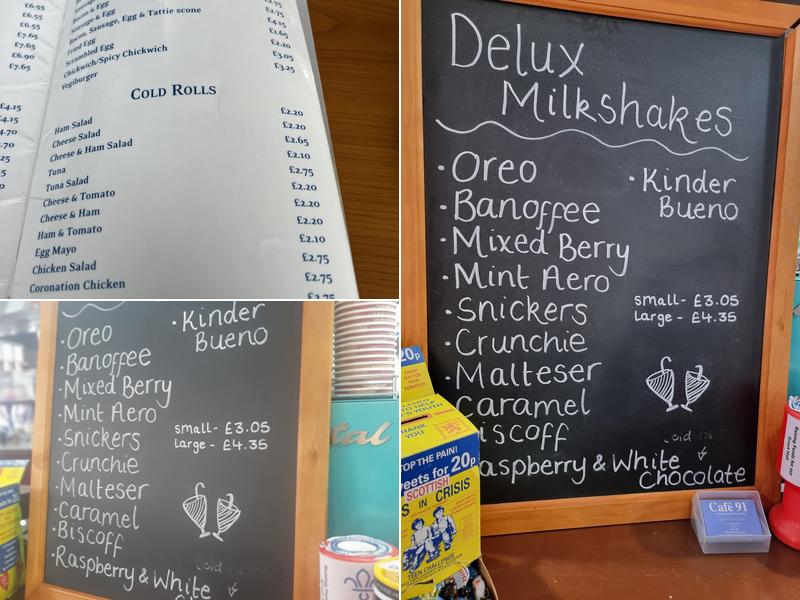 £6.55
£6.55
£6.55
£7.65
£7.65
£6.90
£7.65
£4.15
£4.15
Sausage & Egg
Bacon, Sausage, Egg & Tattie scone
Fried Egg
Scrambled Egg
Chickwich/Spicy Chickwich
Vegiburger
£2.75
£2.75
£4.15
£1.65
£2.20
£3.05
£3.25
COLD ROLLS
Ham Salad
Cheese Salad
Cheese & Ham Salad
Tuna
Tuna Salad
Cheese & Tomato
Cheese & Ham
Ham & Tomato
Egg Mayo
Chicken Salad
Coronation Chicken
£2.20
£2.20
£2.65
£2.10
£2.75
£2.20
£2.20
£2.20
£2.10
£2.75
£2.75
£2.75
Delux
Milkshakes
· Oreo
· Banoffee
· Mixed Berry
· Mint Aero
· Snickers
· Crunchie
· Malteser
Caramel
iscoff
aspberry & White
Chocolate
· Kinder
Bueno
small - £3.05
large - £4.35
20p
THANK YOU
STOP THE PAIN!
20p
SCOTTISH
IN CRISIS
TEEN CHALLENGE
Café 91
· Oreo
· Banoffee
· Mixed Berry
· Mint Aero
· Snickers
· Crunchie
· Malteser
· Caramel
· Biscoff
· Raspberry & White
· Kinder
Bueno
small - £3.05
large - £4.35
tal